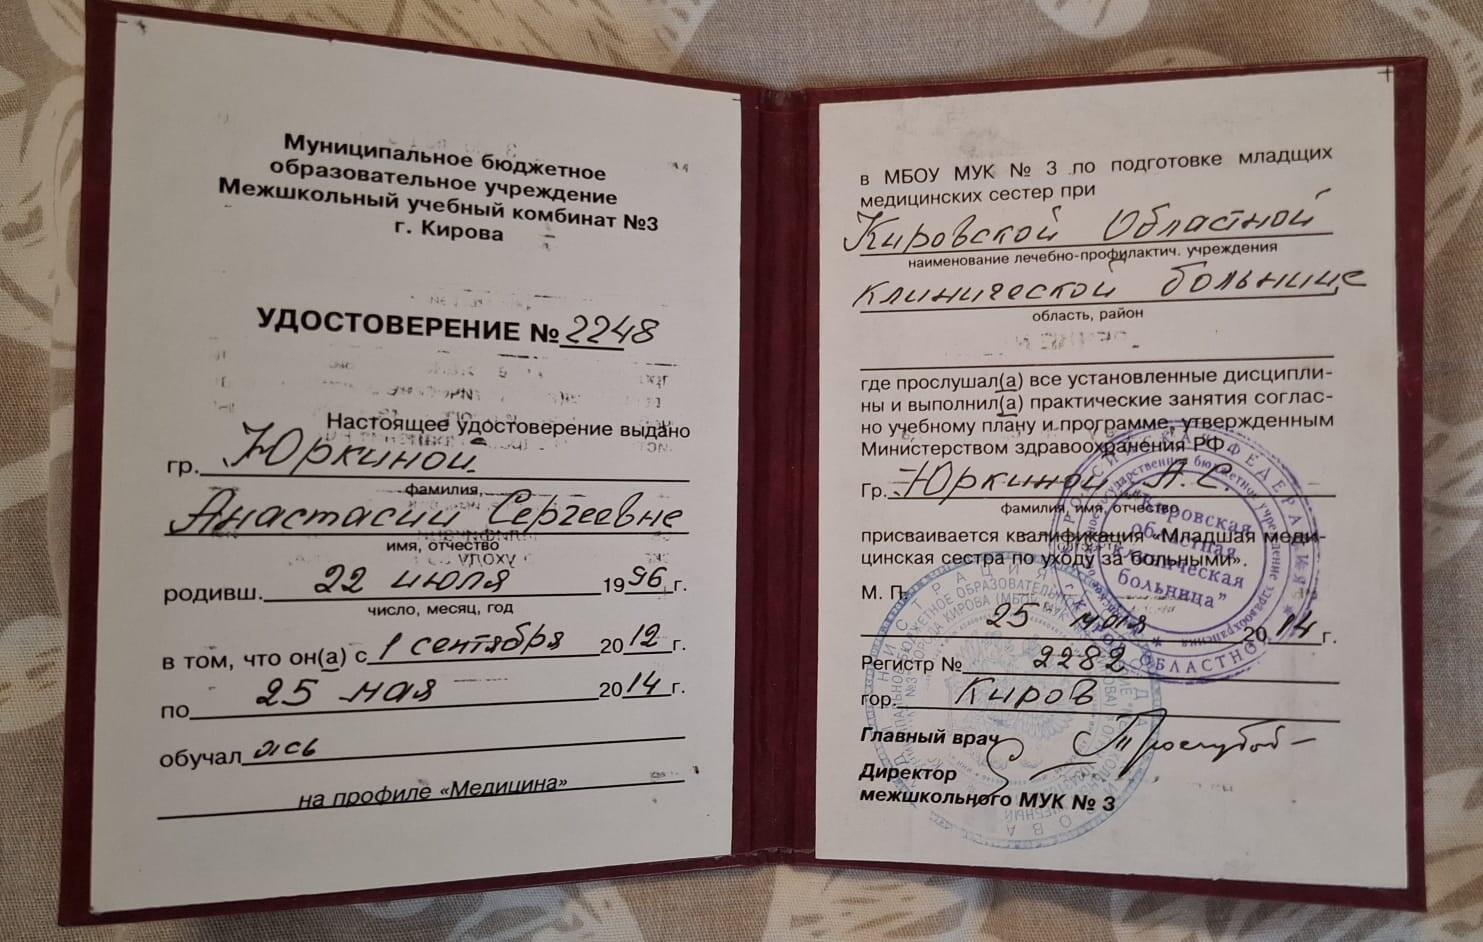 Муниципальное бюджетное
образовательное учреждение
Межшкольный учебный комбинат №3
г. Кирова
УДОСТОВЕРЕНИЕ № 2248
Настоящее удостоверение выдано
гр. Юркиной
фамилия,
Анастасии Сергеевне
имя, отчество
родивш. 22 июля 1996 г.
число, месяц, год
в том, что он(а) с 1 сентября 2012 г.
по 25 мая 2014 г.
обучалась
на профиле «Медицина»
в МБОУ МУК № 3 по подготовке младщих
медицинских сестер при
Кировской Областной
наименование лечебно-профилактич. учреждения
клинической больнице
область, район
где прослушал(а) все установленные дисципли-
ны и выполнил(а) практические занятия соглас-
но учебному плану и программе, утвержденным
Министерством здравоохранения РФ
Гр. Юркиной А.С.
фамилия, имя, отчество
присваивается квалификация «Младшая меди-
цинская сестра по уходу за больными».
М. П.
25 2014 г.
Регистр № 2282
гор. Киров
Главный врач
Директор
межшкольного МУК № 3
РОССИЙСКАЯ ФЕДЕРАЦИЯ
"Кировская
областная
клиническая
больница"